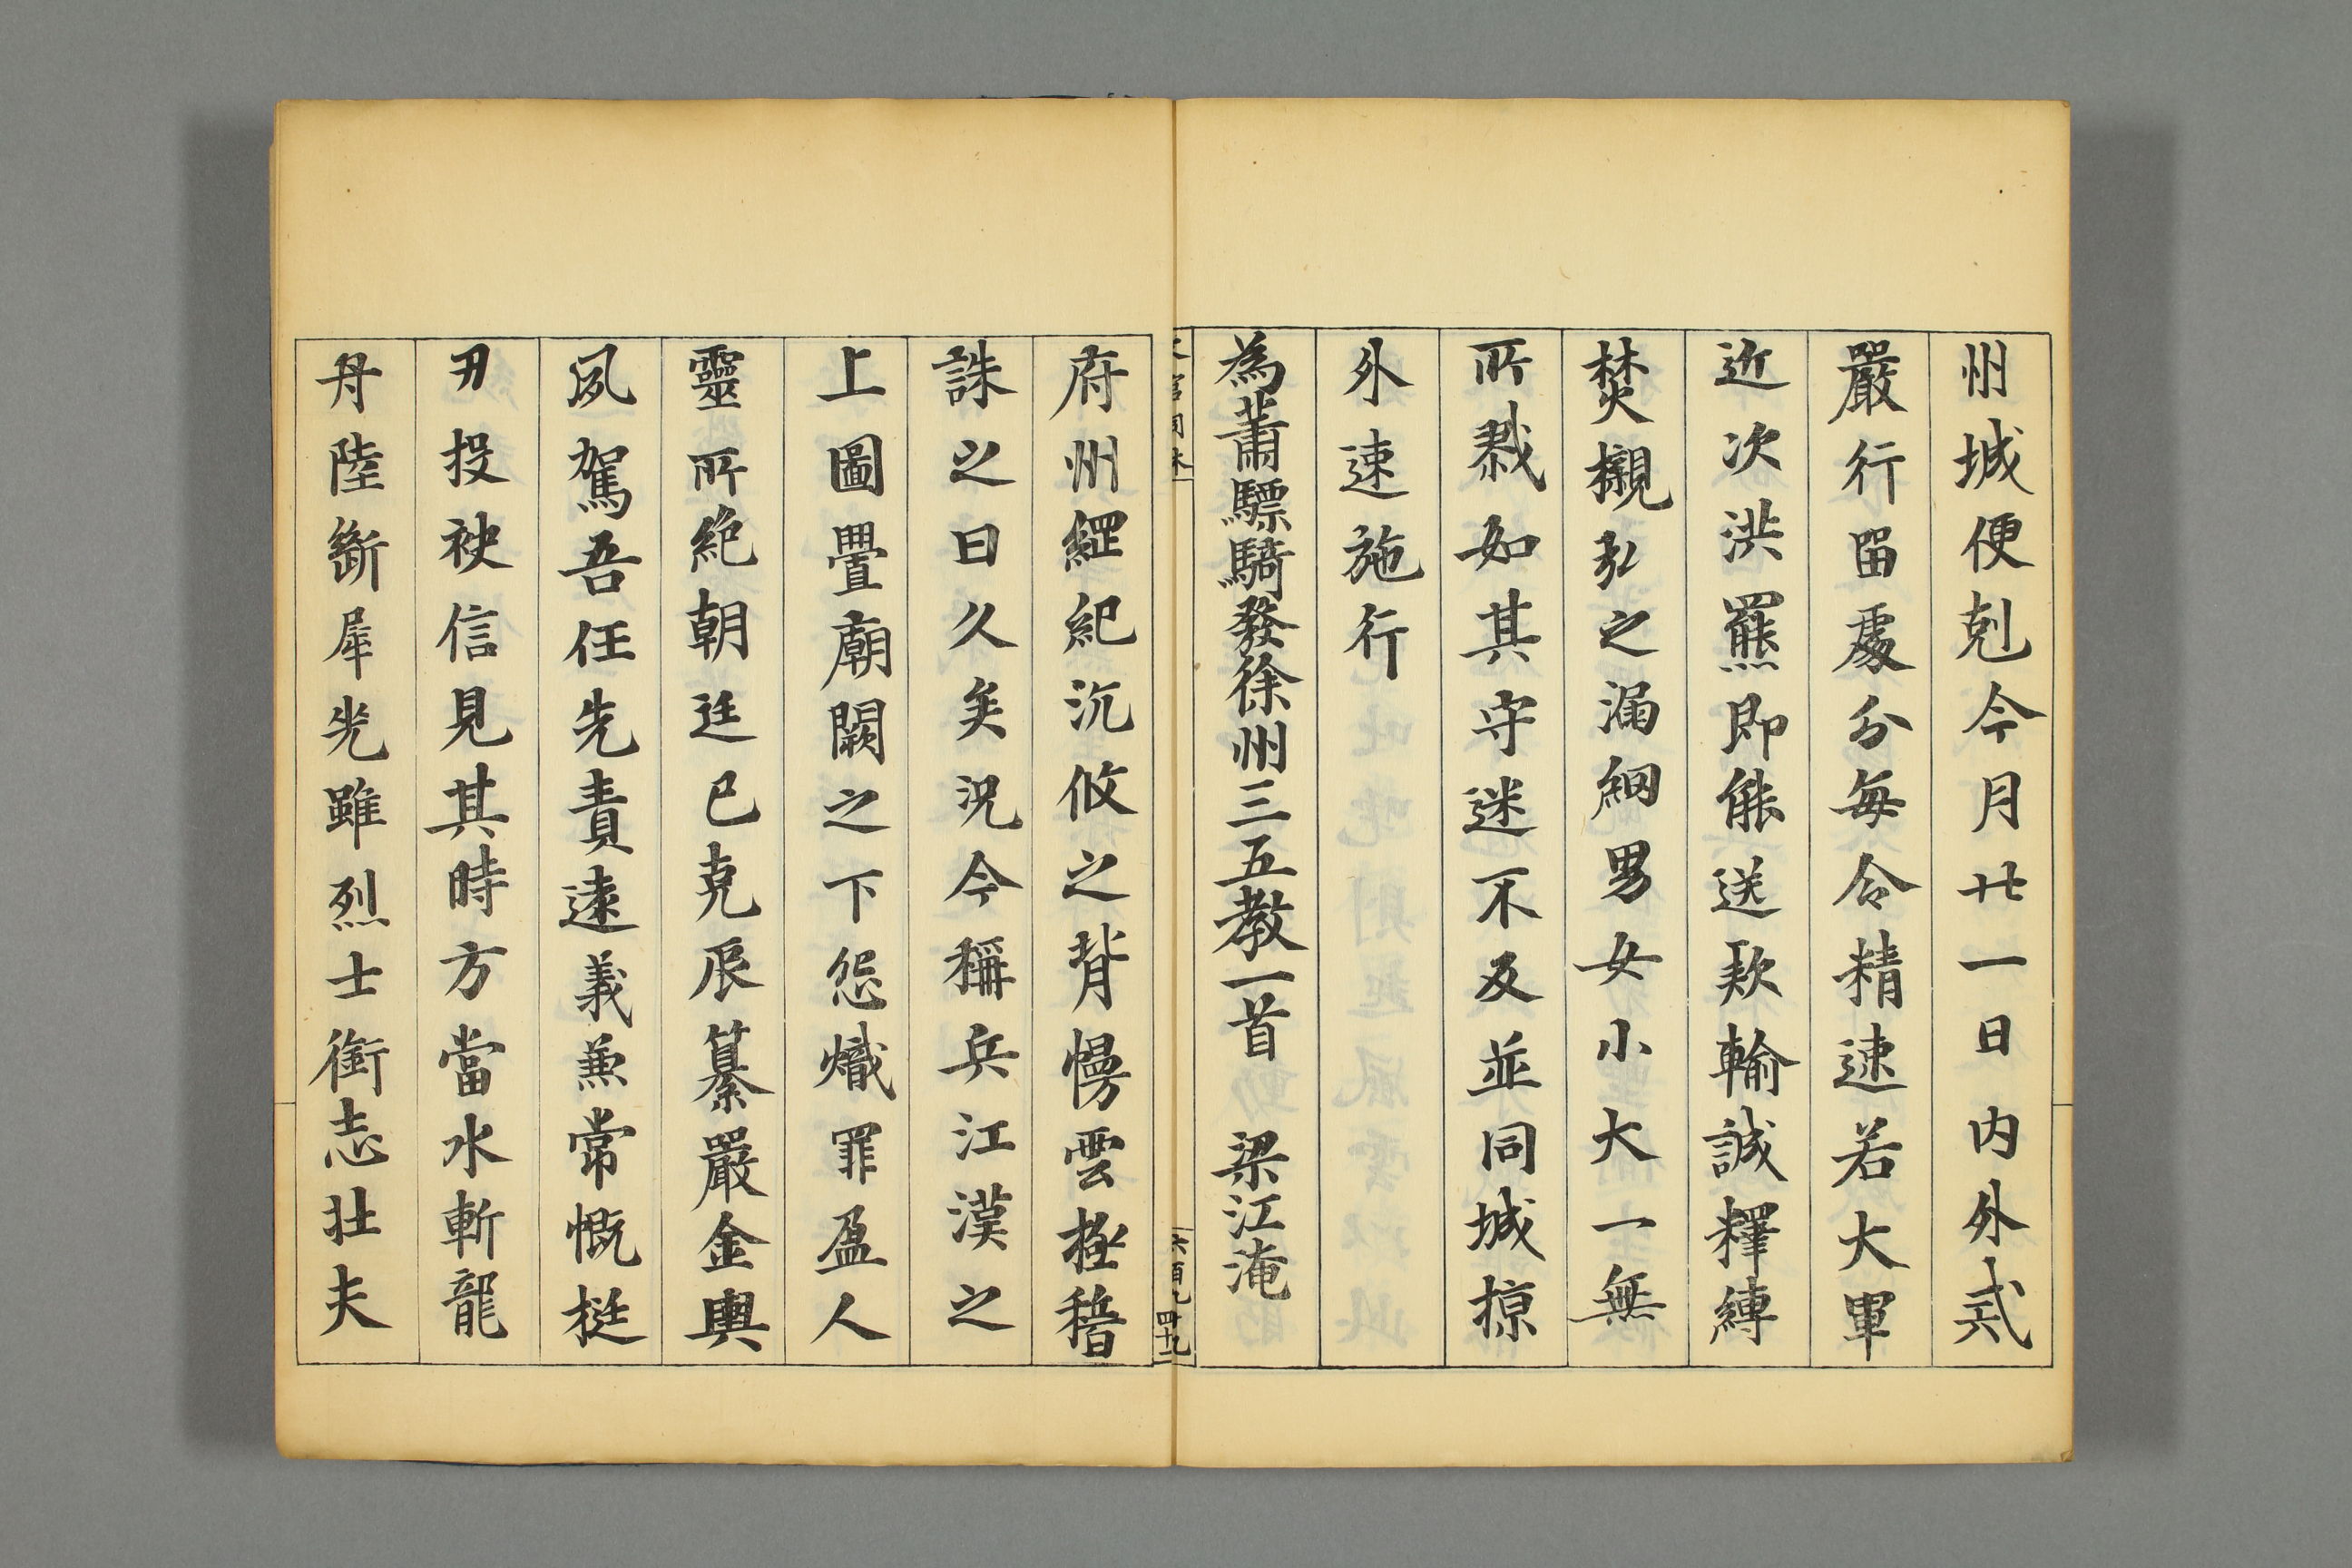 州城便剋今月廿一日内外貳
嚴行畱處分每令精速若大軍
近次洪羆即能送款輸誠釋縛
焚櫬弘之漏網男女小大一無
所戮如其守迷不及並同城掠
外速施行
為蕭驃騎發徐州三五教一首 梁江淹
文館詞林
六百九
四十九
府州纙紀沉攸之背慢雲極稽
誅之日久矣況今稱兵江漢之
上圖疊廟闕之下怨熾罪盈人
靈所絕朝廷已克辰纂嚴金輿
夙駕吾任先責遠義兼常慨挺
刃投袂信見其時方當水斬龍
舟陸斷犀光雖烈士銜志壮夫